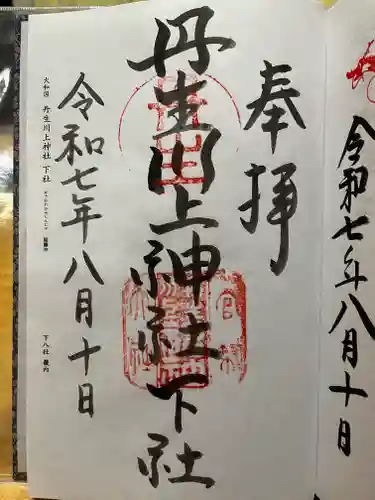 令和七年八月十日
奉拝
丹生川上神社下社
令和七年八月十日
大和国 丹生川上神社 下社